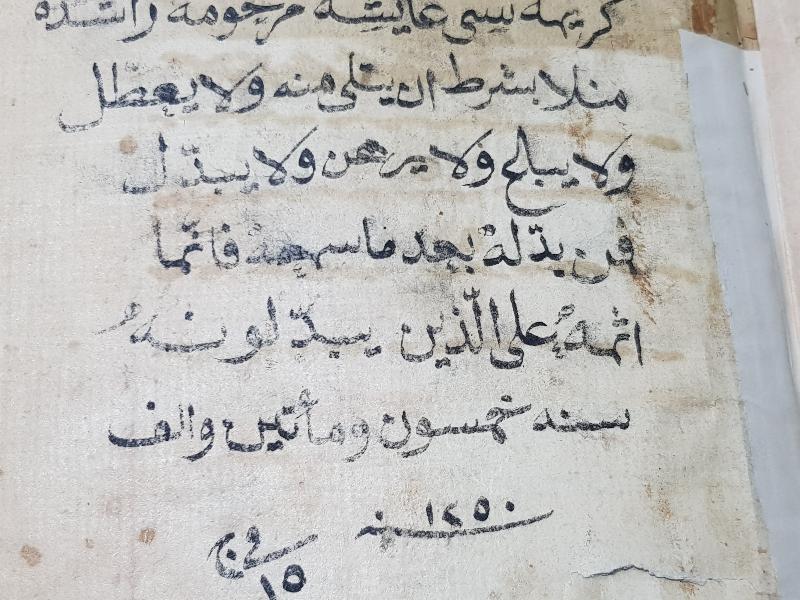 كريمه سى عايشه مرحومه راشده
منلا بشرط ان يتلى منه ولا يعطل
ولا يبلح ولا يرهن ولا يبدل
فمن بدّله بعد ما سمعه فانّما
اثمه على الّذين يبدّلونه
سنه خمسون ومأتين والف
سنه ١٢٥٠
فى ج
١٥